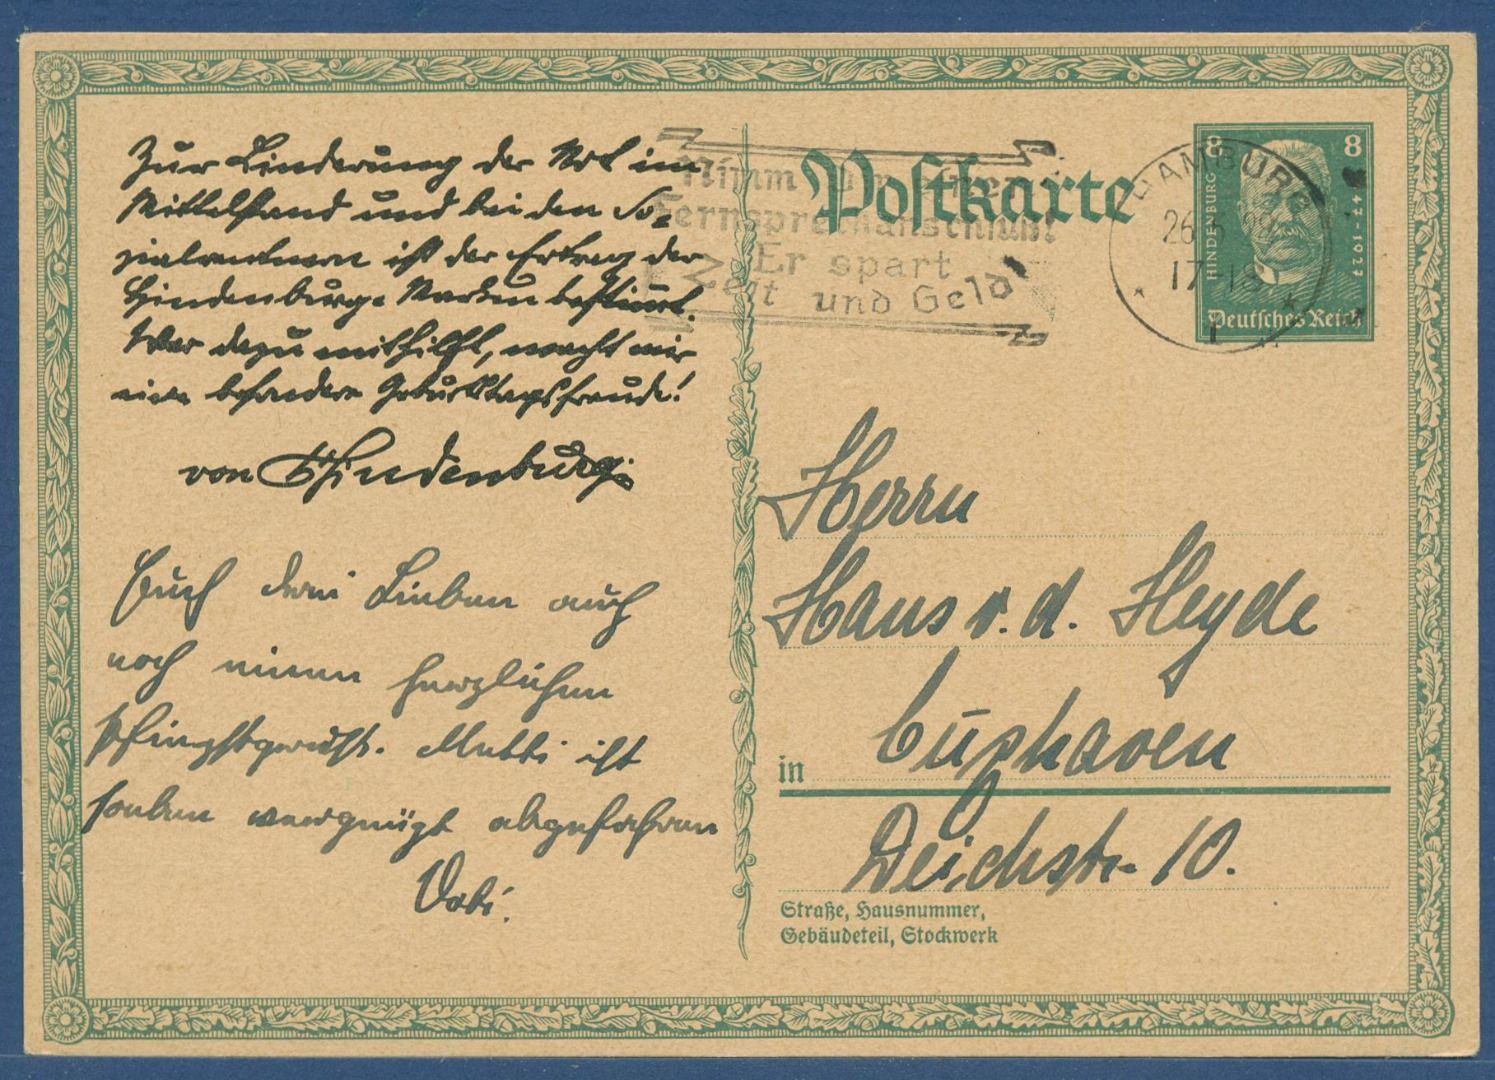 Zur Linderung der Not im
Mittelstand und bei den So-
zialrentnern ist der Ertrag der
Hindenburg-Marken bestimmt.
Wer dazu mithilft, macht mir
eine besondere Geburtstagsfreude!
von Hindenburg.
Euch drei Lieben auch
noch einen herzlichen
Pfingstgruß. Mutti ist
soeben vergnügt abgefahren
Vati.
Postkarte
Nimm
Fernsprechanschluß!
Er spart
Zeit und Geld
HAMBURG
26.5.
17-18
1
8 8
HINDENBURG
1847-1927
Deutsches Reich
Herrn
Hans v. d. Heyde
in Cuxhaven
Deichstr. 10.
Straße, Hausnummer,
Gebäudeteil, Stockwerk